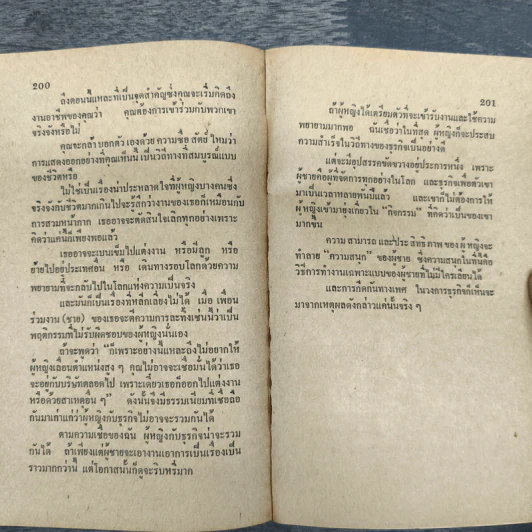 200
ถึงตอนนี้แหละที่เป็นจุดสำคัญซึ่งคุณจะเริ่มคิดถึง
งานอาชีพของคุณว่า คุณต้องการเข้าร่วมกับพวกเขา
จริงจังหรือไม่
คุณจะกล้า บอกตัว เองด้วย ความซื่อ สัตย์ ไหมว่า
การแสดงออกอย่างที่คุณเห็นนี้เป็นวิถีทางที่สมบูรณ์แบบ
ของชีวิตหรือ
ไม่ใช่เป็นเรื่องน่าประหลาดใจที่ผู้หญิงบางคนซึ่ง
จริงจังกับชีวิตมากเกินไปจะรู้สึกว่างานของเธอก็เหมือนกับ
การสวมหน้ากาก เธออาจจะตัดสินใจเลิกทุกอย่างเพราะ
คิดว่าแค่นี้ก็เพียงพอแล้ว
เธออาจจะเบนเข็มไปแต่งงาน หรือมีลูก หรือ
ย้ายไปอยู่ประเทศอื่น หรือ เดินทางรอบโลกด้วยความ
พยายามที่จะกลับไปในโลกแห่งความเป็นจริง
และมันก็เป็นเรื่องที่หลีกเลี่ยงไม่ได้ เมื่อ เพื่อน
ร่วมงาน (ชาย) ของเธอจะตีความการละทิ้งเช่นนี้ว่าเป็น
พฤติกรรมที่ไม่รับผิดชอบของผู้หญิงนั่นเอง
ถ้าจะพูดว่า "ก็เพราะอย่างนี้แหละถึงไม่อยากให้
ผู้หญิงเลื่อนตำแหน่งสูง ๆ คุณไม่อาจจะเชื่อมั่นได้ว่าเธอ
จะอยู่กับบริษัทตลอดไป เพราะเดี๋ยวเธอก็ออกไปแต่งงาน
หรือด้วยสาเหตุอื่น ๆ" ดังนั้นจึงมีธรรมเนียมที่เชื่อถือ
กันมาเก่าแก่ว่าผู้หญิงกับธุรกิจไม่อาจจะรวมกันได้
ตามความเชื่อของฉัน ผู้หญิงกับธุรกิจน่าจะรวม
กันได้ ถ้าเพียงแต่ผู้ชายจะเอางานเอาการเป็นเรื่องเป็น
ราวมากกว่านี้ แต่โอกาสนั้นก็ดูจะริบหรี่มาก
201
ถ้าผู้หญิงได้เตรียมตัวที่จะเข้ารับงานและใช้ความ
พยายามมากพอ ฉันเชื่อว่าในที่สุด ผู้หญิงก็จะประสบ
ความสำเร็จในวิถีทางของธุรกิจนี้เป็นอย่างดี
แต่จะมีอุปสรรคขัดขวางอยู่ประการหนึ่ง เพราะ
ผู้ชายคือผู้ที่จัดการทุกอย่างในโลก และธุรกิจเพื่อตัวเขา
มาเป็นเวลาหลายพันปีแล้ว และเขาก็ไม่ต้องการให้
ผู้หญิงเข้ามายุ่งเกี่ยวใน "กิจกรรม" ที่คิดว่าเป็นของเขา
มากขึ้น
ความ สามารถ และประสิทธิภาพ ของ ผู้หญิงจะ
ทำลาย "ความสนุก" ของผู้ชาย ซึ่งความสนุกในที่นี้คือ
วิธีการทำงานเฉพาะแบบของผู้ชายที่ไม่มีใครเลียนได้
และการกีดกันทางเพศ ในวงการธุรกิจก็เห็นจะ
มาจากเหตุผลดังกล่าวแค่นั้นจริง ๆ